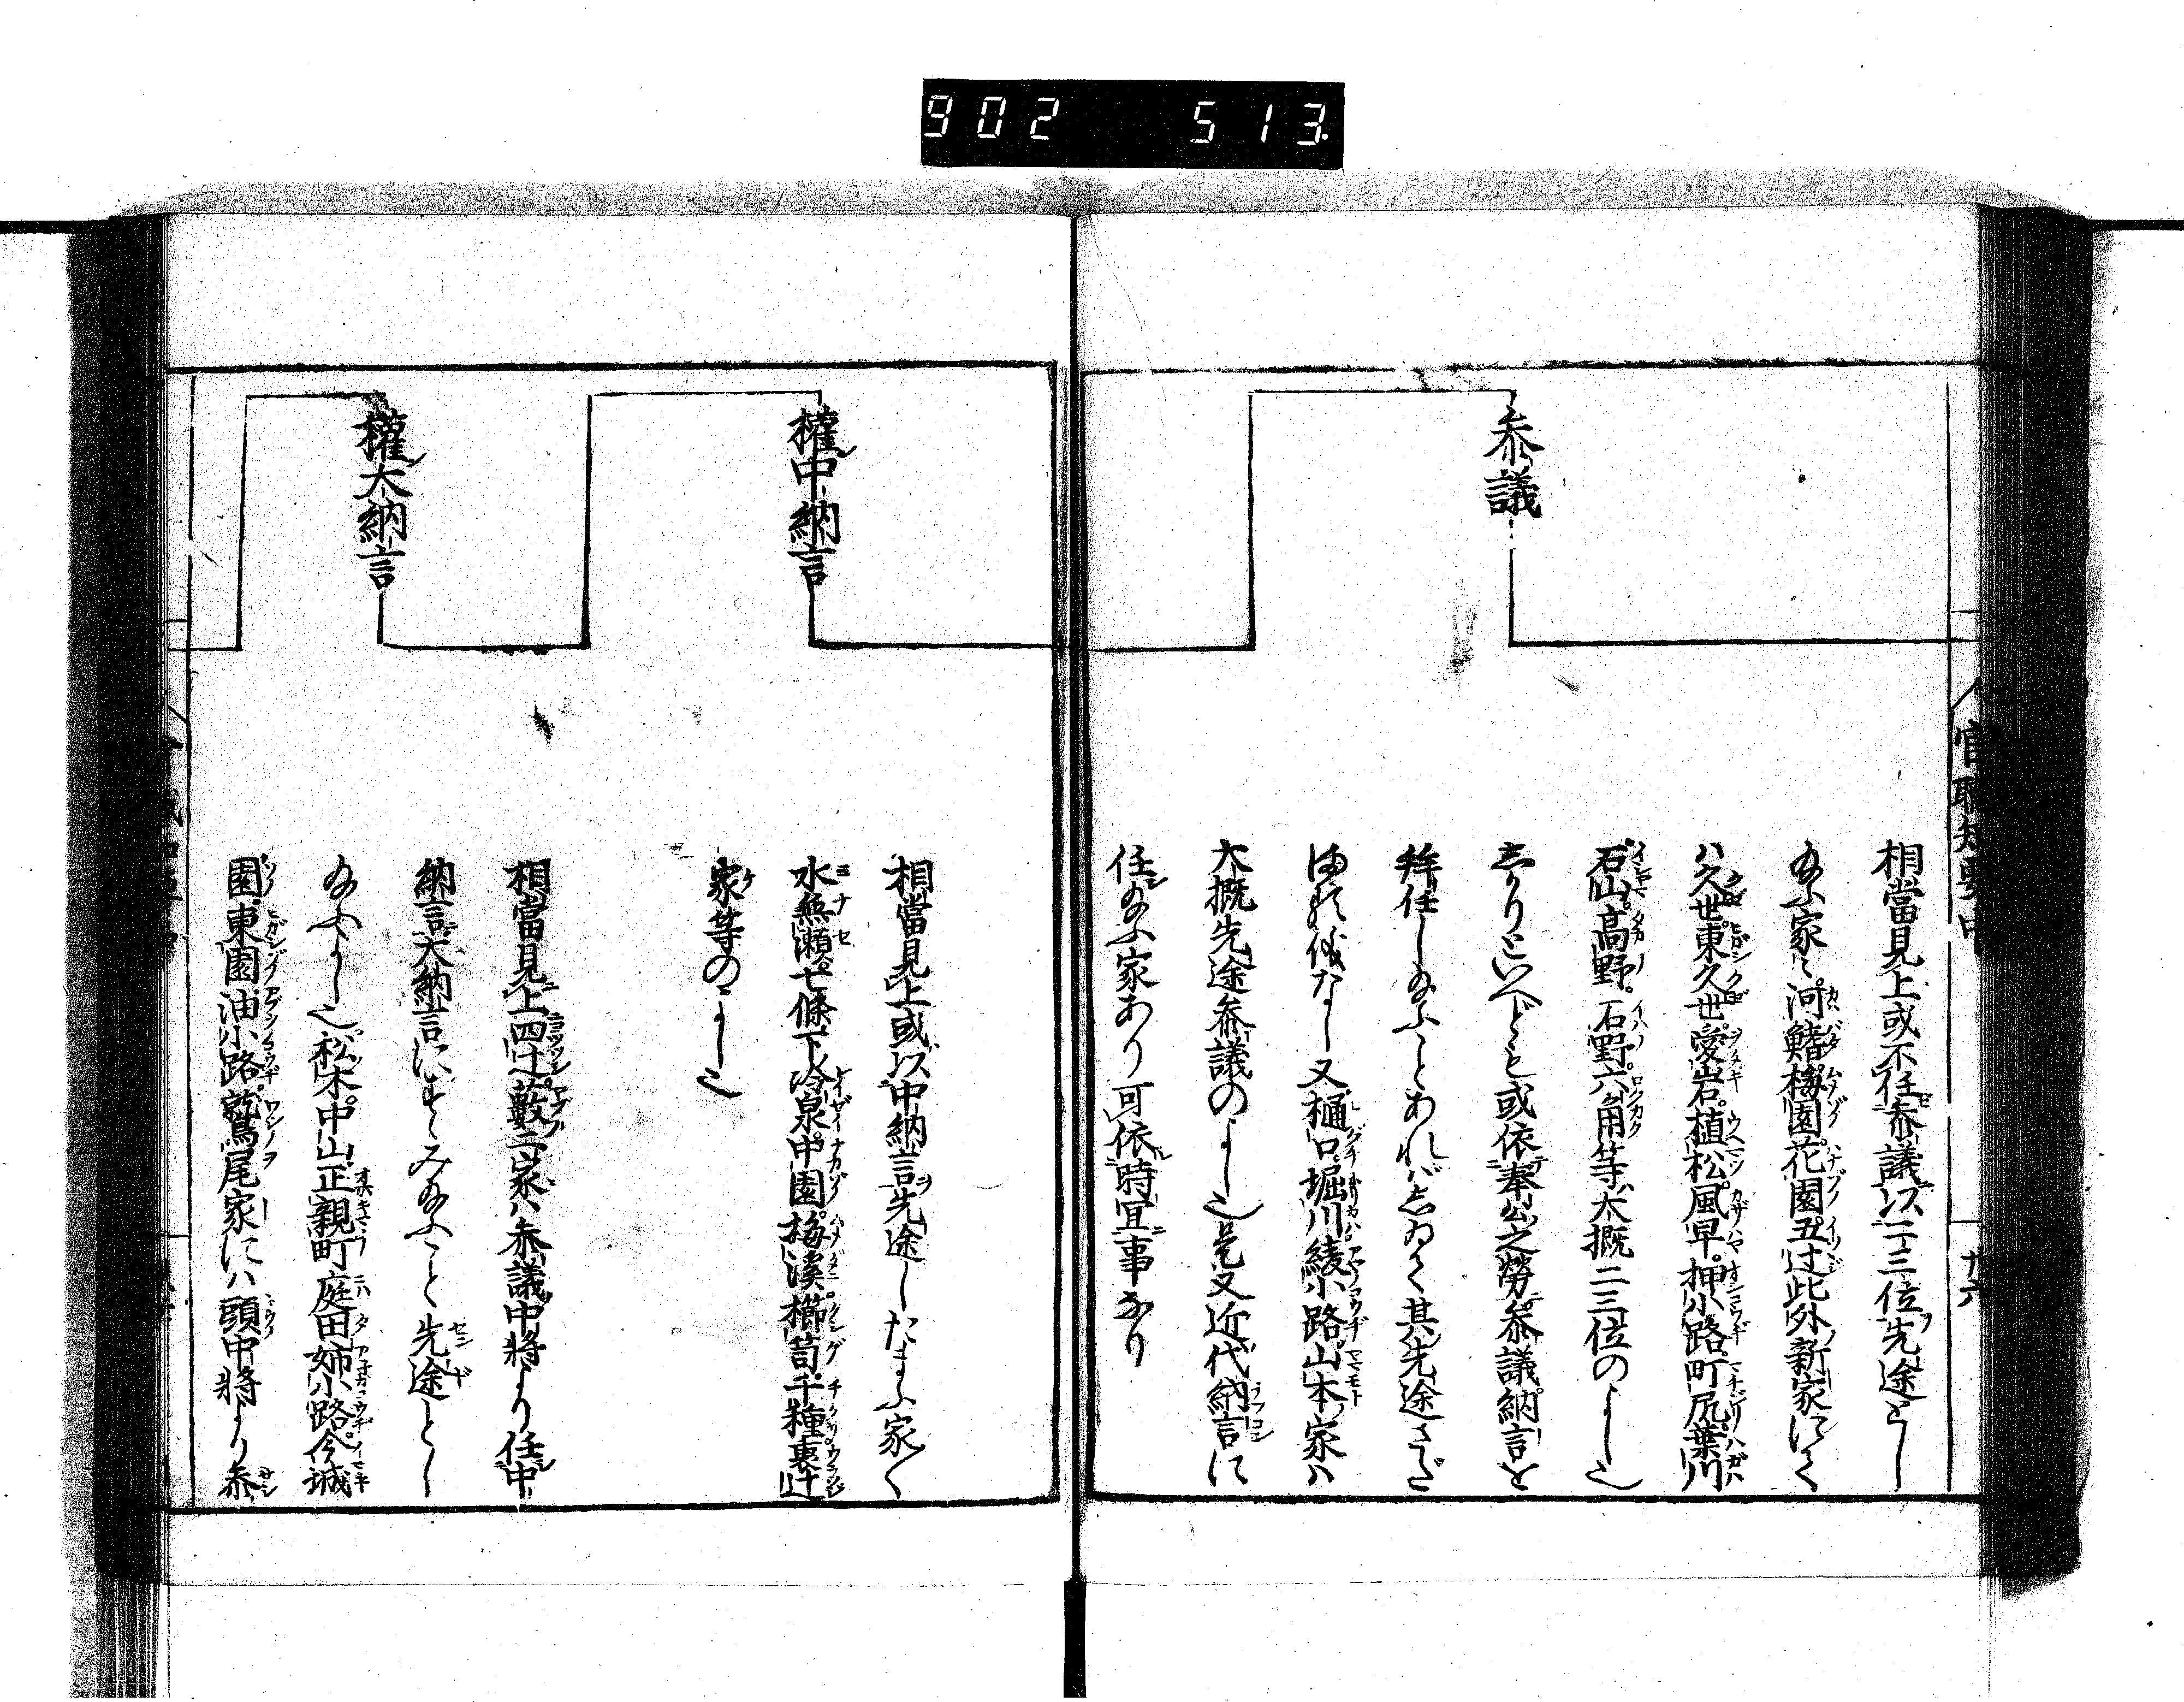 902 513
官職知要中
廿六
参議
相當見上或不任参議以二三位先途とし
給ふ家々河鰭梅園花園五辻此外新家にて
ハ久世東久世愛宕植松風早押小路町尻葉川
石山高野石野六角等大概二三位のよし也
しかりといへども或依奉公之勞参議納言を
拝任し給ふことあれバしゐて其先途さだ
まれる儀なし又樋口堀川綾小路山本家ハ
大概先途参議のよし也是又近代納言に
任給ふ家あり可依時宜事なり
權中納言
相當見上或以中納言先途したまふ家々
水無瀬七條下冷泉中園梅溪櫛笥千種裏辻
家等のよし也
權大納言
相當見上四辻藪二家ハ参議中將より任中
納言大納言にすゝみ給ふこと先途とし
給ふよし也松木中山正親町庭田姉小路今城
園東園油小路鷲尾家にハ頭中將より参